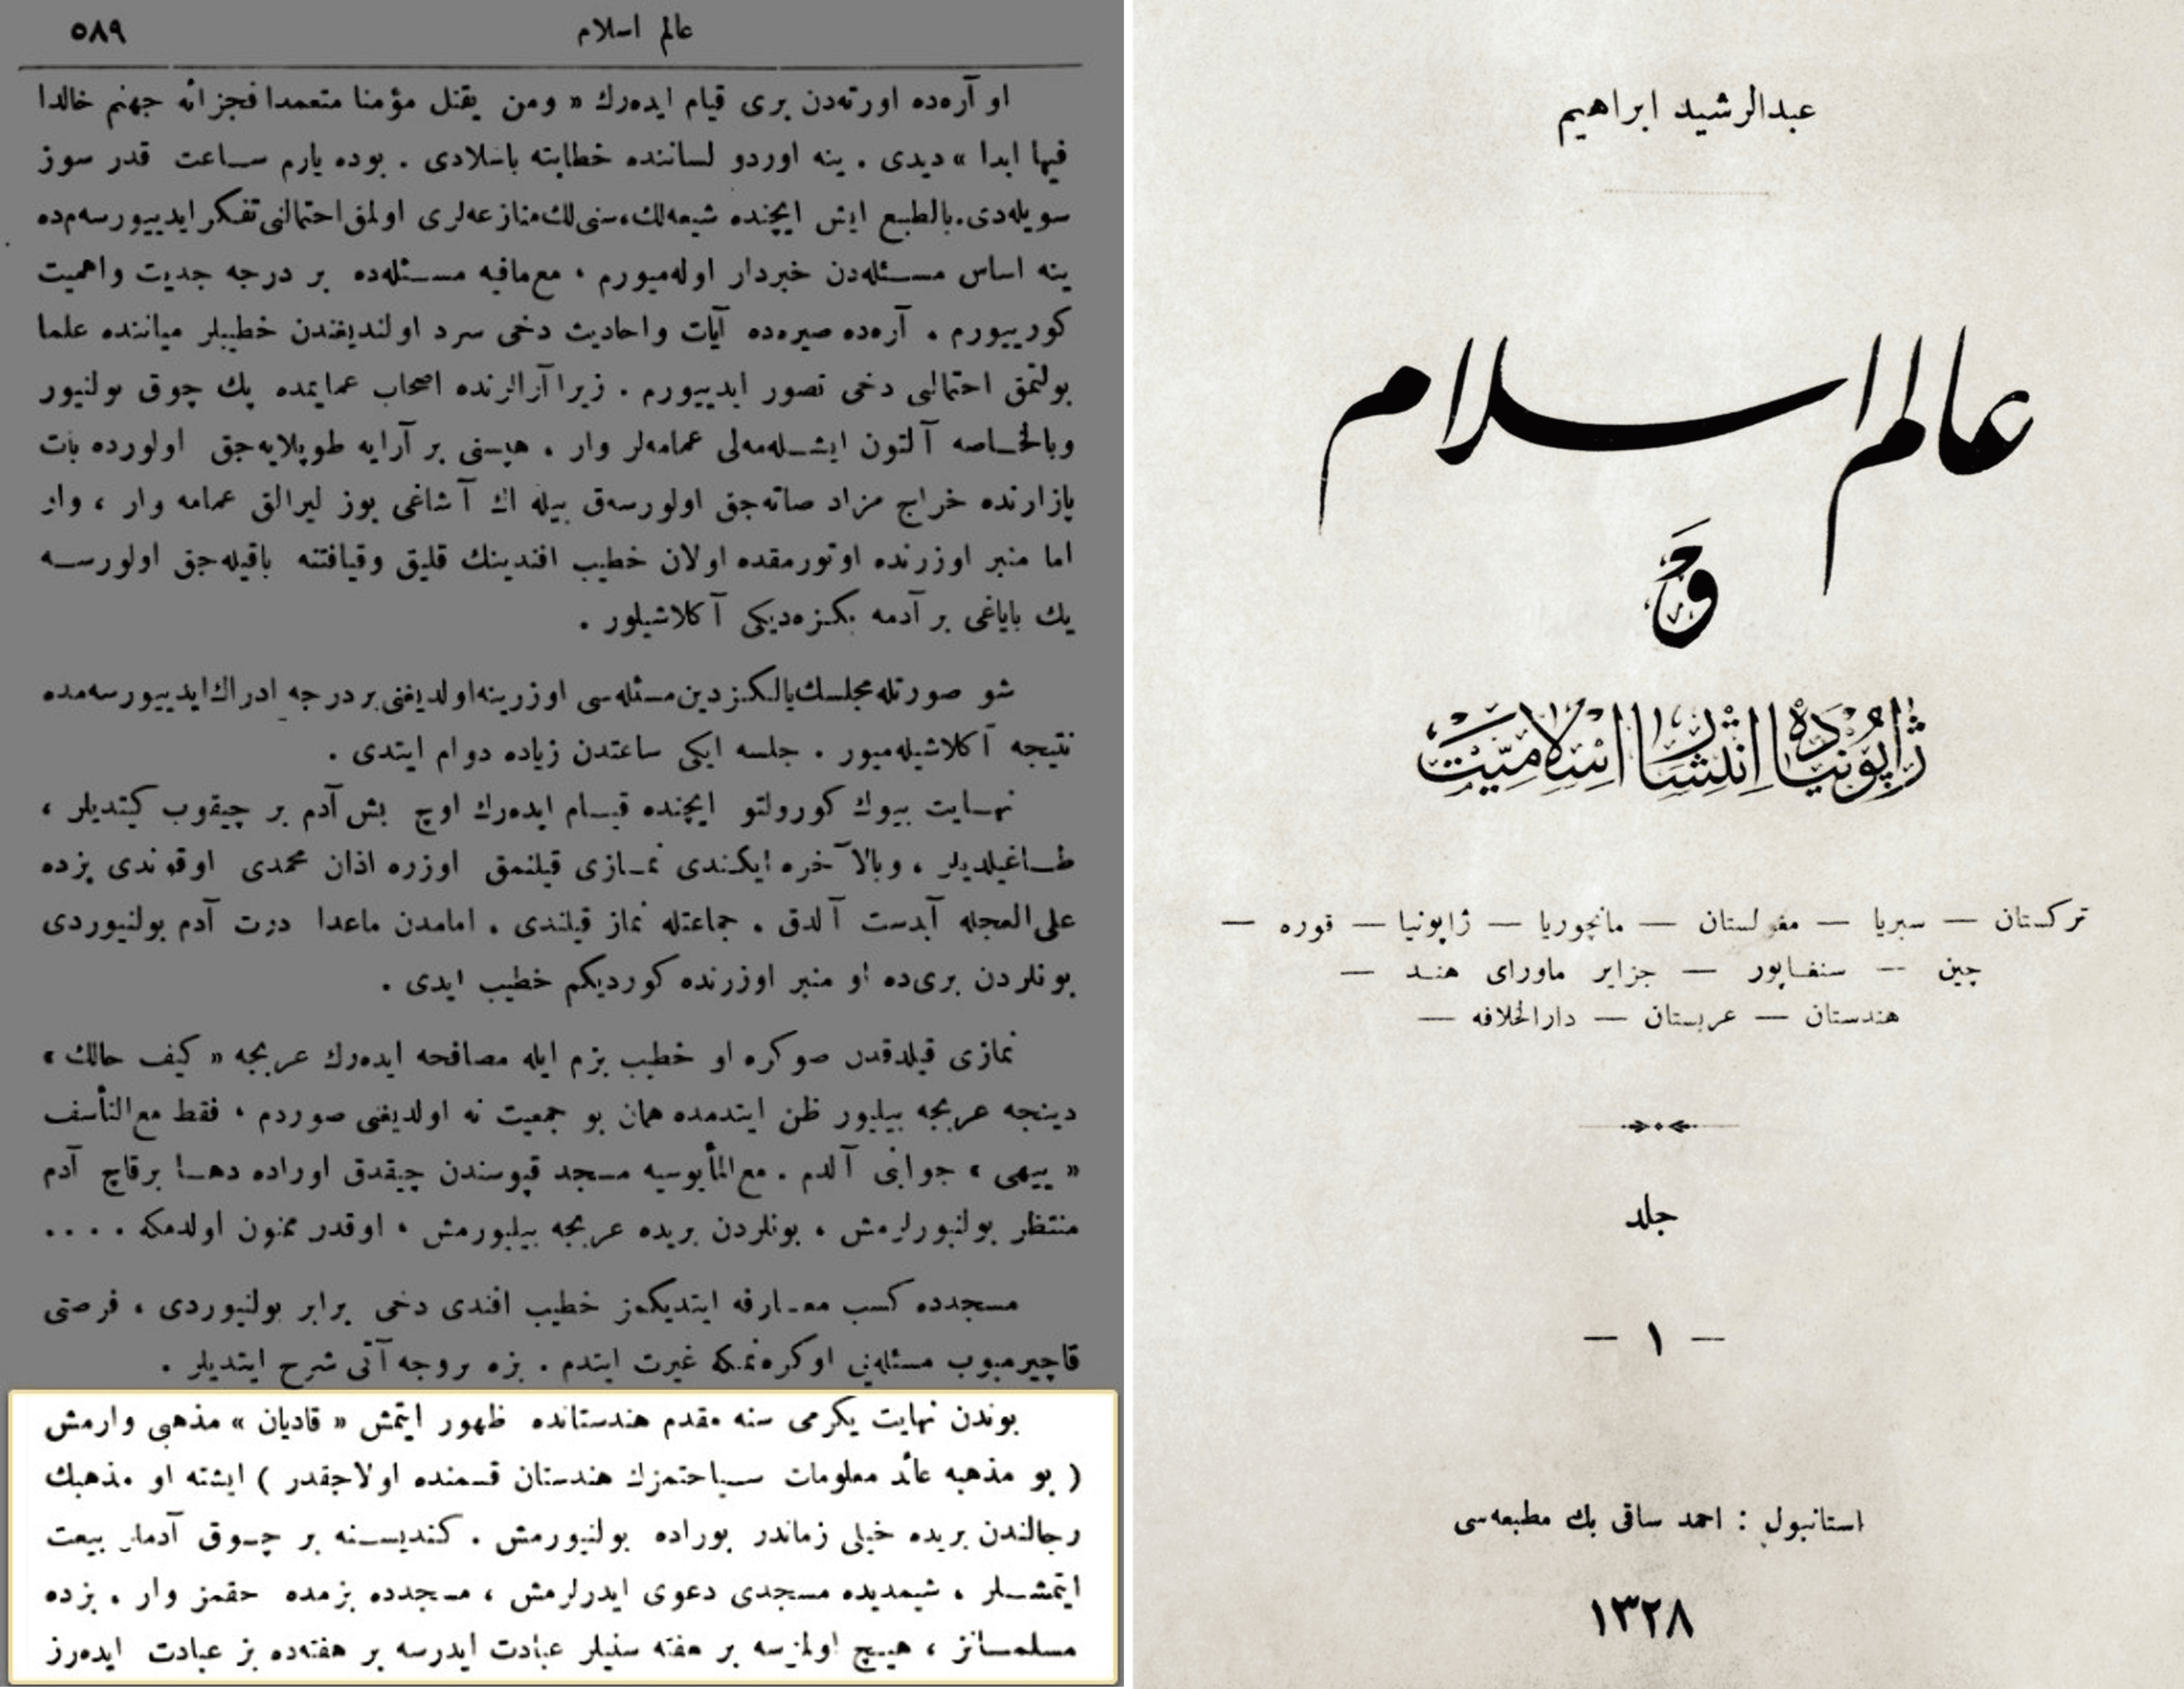 عالم اسلام
٥٨٩
او آره‌ده اورته‌دن بری قیام ایده‌رك « ومن یقتل مؤمنا متعمدا فجزائه جهنم خالدا
فیها ابدا » دیدی . ینه اوردو لساننده خطابته باشلادی . بوده یارم ساعت قدر سوز
سویله‌دی. بالطبع ایش ایچنده شیعه‌لك، سنی‌لك منازعه‌لری اولمق احتمالنی تفكر ایدییورسه‌م‌ده
ینه اساس مسئله‌دن خبردار اوله‌میورم ، مع‌مافیه مسئله‌ده بر درجه جدیت واهمیت
كورییورم . آره‌ده صیره‌ده آیات واحادیث دخی سرد اولندیغندن خطیبلر میاننده علما
بولنمق احتمالی دخی تصور ایدییورم . زیرا آرالرنده اصحاب عمایمده پك چوق بولنیور
وبالخاصه آلتون ایشله‌مه‌لی عمامه‌لر وار . هپسنی بر آرایه طوپلایه‌جق اولورده بات
پازارنده خراج مزاد صاته‌جق اولورسه‌ق بیله اك آشاغی یوز لیرالق عمامه وار ، وار
اما منبر اوزرنده اوتورمقده اولان خطیب افندینك قلیق وقیافتنه باقیله‌جق اولورسه
پك بایاغی بر آدمه بكزه‌دیكی آكلاشیلور .
شو صورتله مجلسك یالكز دین مسئله‌سی اوزرینه اولدیغنی بر درجه ادراك ایدییورسه‌مده
نتیجه آكلاشیله‌میور . جلسه ایكی ساعتدن زیاده دوام ایتدی .
نهایت بیوك كورولتو ایچنده قیام ایده‌رك اوچ بش آدم بر چیقوب كیتدیلر ،
طاغیلدیلر ، وبالآخره ایكندی نمازی قیلنمق اوزره اذان محمدی اوقوندی بزده
علی‌العجله آبدست آلدق . جماعتله نماز قیلندی . امامدن ماعدا درت آدم بولنیوردی
بونلردن بری‌ده او منبر اوزرنده كوردیكم خطیب ایدی .
نمازی قیلدقدن صوكره او خطیب بزم ایله مصافحه ایده‌رك عربجه « كیف حالك »
دینجه عربجه بیلیور ظن ایتدمده همان بو جمعیت نه اولدیغنی صوردم ، فقط مع‌التأسف
« ییهی » جوابی آلدم . مع‌المأیوسیه مسجد قپوسندن چیقدق اوراده دها برقاچ آدم
منتظر بولنیورلرمش ، بونلردن بریده عربجه بیلیورمش ، اوقدر ممنون اولدمكه ....
مسجدده كسب معارفه ایتدیكمز خطیب افندی دخی برابر بولنیوردی ، فرصتی
قاچیرمیوب مسئله‌یی اوكره‌نمكه غیرت ایتدم . بزه بروجه آتی شرح ایتدیلر .
بوندن نهایت یكرمی سنه مقدم هندستانده ظهور ایتمش « قادیان » مذهبی وارمش
( بو مذهبه عائد معلومات سیاحتمزك هندستان قسمنده اولاجقدر ) ایشته او مذهبك
رجالندن بریده خیلی زماندر بوراده بولنیورمش . كندیسنه بر چوق آدملر بیعت
ایتمشلر ، شیمدیده مسجدی دعوی ایدرلرمش ، مسجدده بزمده حقمز وار . بزده
مسلمانز ، هیچ اولمزسه بر هفته سنیلر عبادت ایدرسه بر هفته‌ده بز عبادت ایده‌رز
عبدالرشید ابراهیم
عالم اسلام
و
ژاپونیاده انتشار اسلامیت
تركستان — سبریا — مغولستان — مانچوریا — ژاپونیا — قوره —
چین — سنغاپور — جزایر ماورای هند —
هندستان — عربستان — دارالخلافه —
جلد
— ١ —
استانبول : احمد ساقی بك مطبعه‌سی
١٣٢٨